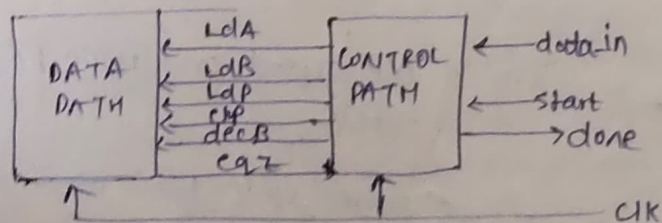 LdA
DATA
PATH
LdB
LdP
clrP
decB
eqz
CONTROL
PATH
data_in
start
done
clk